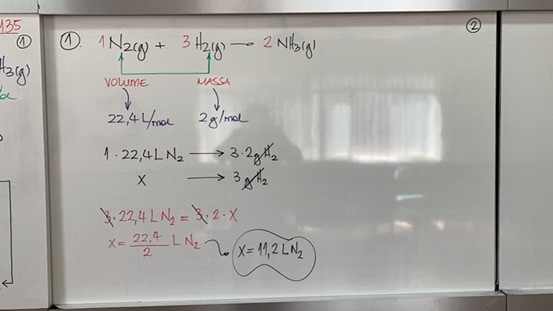 135
①
H₃(g)
② 
① 1 N₂(g) + 3 H₂(g) → 2 NH₃(g)
VOLUME MASSA
22,4 L/mol 2 g/mol
1 · 22,4 L N₂ → 3 · 2 g H₂
X → 3 g H₂
3 · 22,4 L N₂ = 3 · 2 · X
X = 22,4/2 L N₂ X = 11,2 L N₂